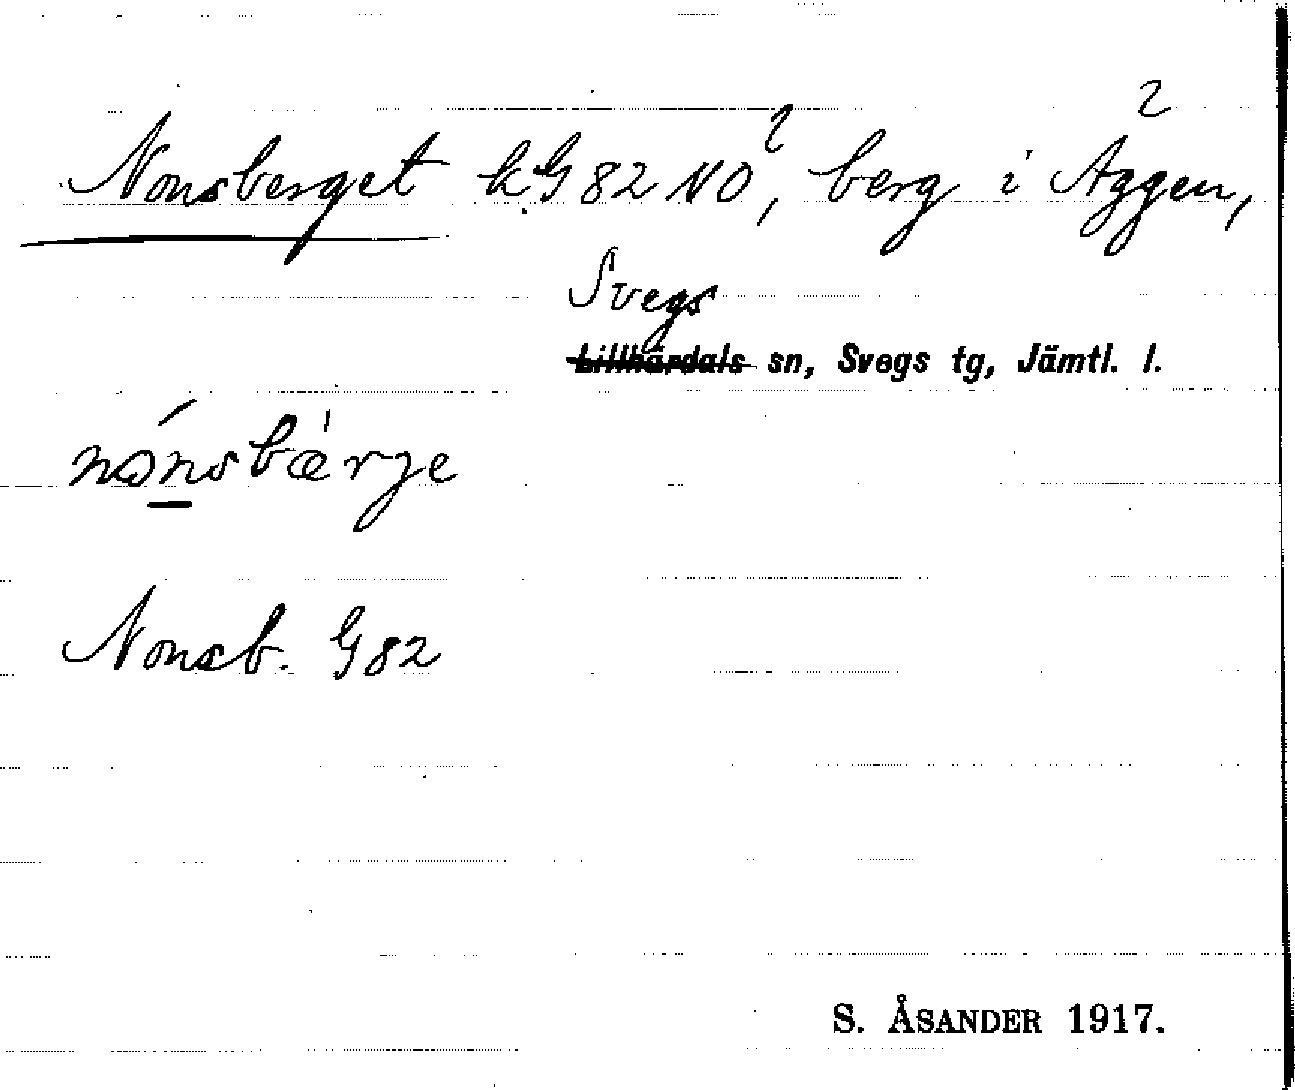 Nonsberget k. G 82 NO², berg i Äggen,
Svegs
Lillhärdals sn, Svegs tg, Jämtl. l.
nónsbæ̀rje
Nonsb. G 82
S. ÅSANDER 1917.